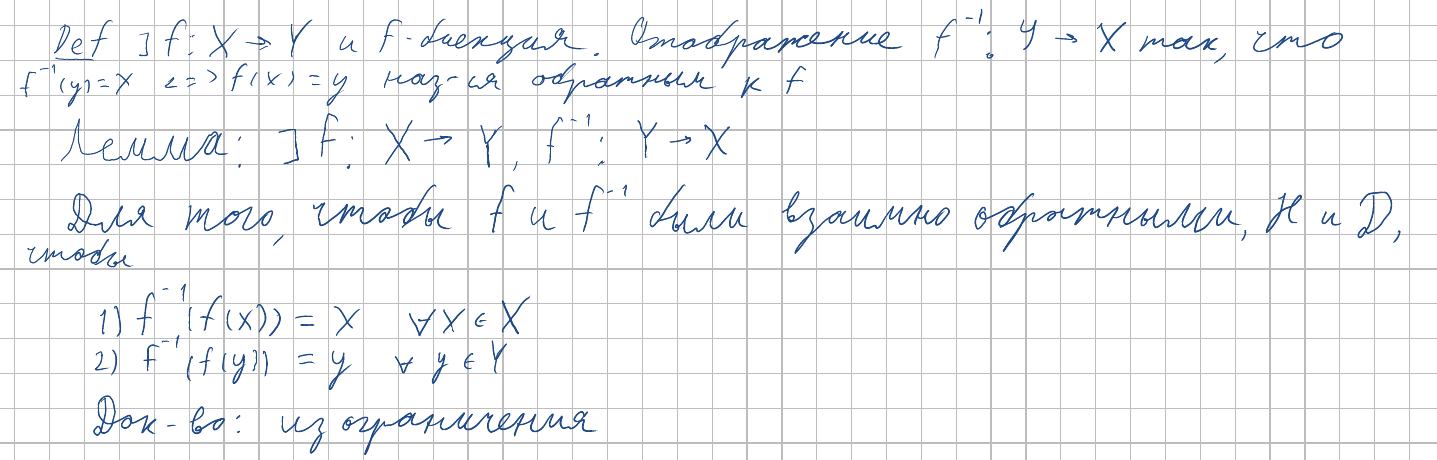 Def ] f: X → Y и f - биекция. Отображение f⁻¹: Y → X так, что
f⁻¹(y)=x <=> f(x)=y наз-ся обратным к f
Лемма: ] f: X → Y, f⁻¹: Y → X
Для того, чтобы f и f⁻¹ были взаимно обратными, Н и D,
чтобы
1) f⁻¹(f(x)) = x ∀x ∈ X
2) f⁻¹(f(y)) = y ∀ y ∈ Y
Док-во: из ограничения